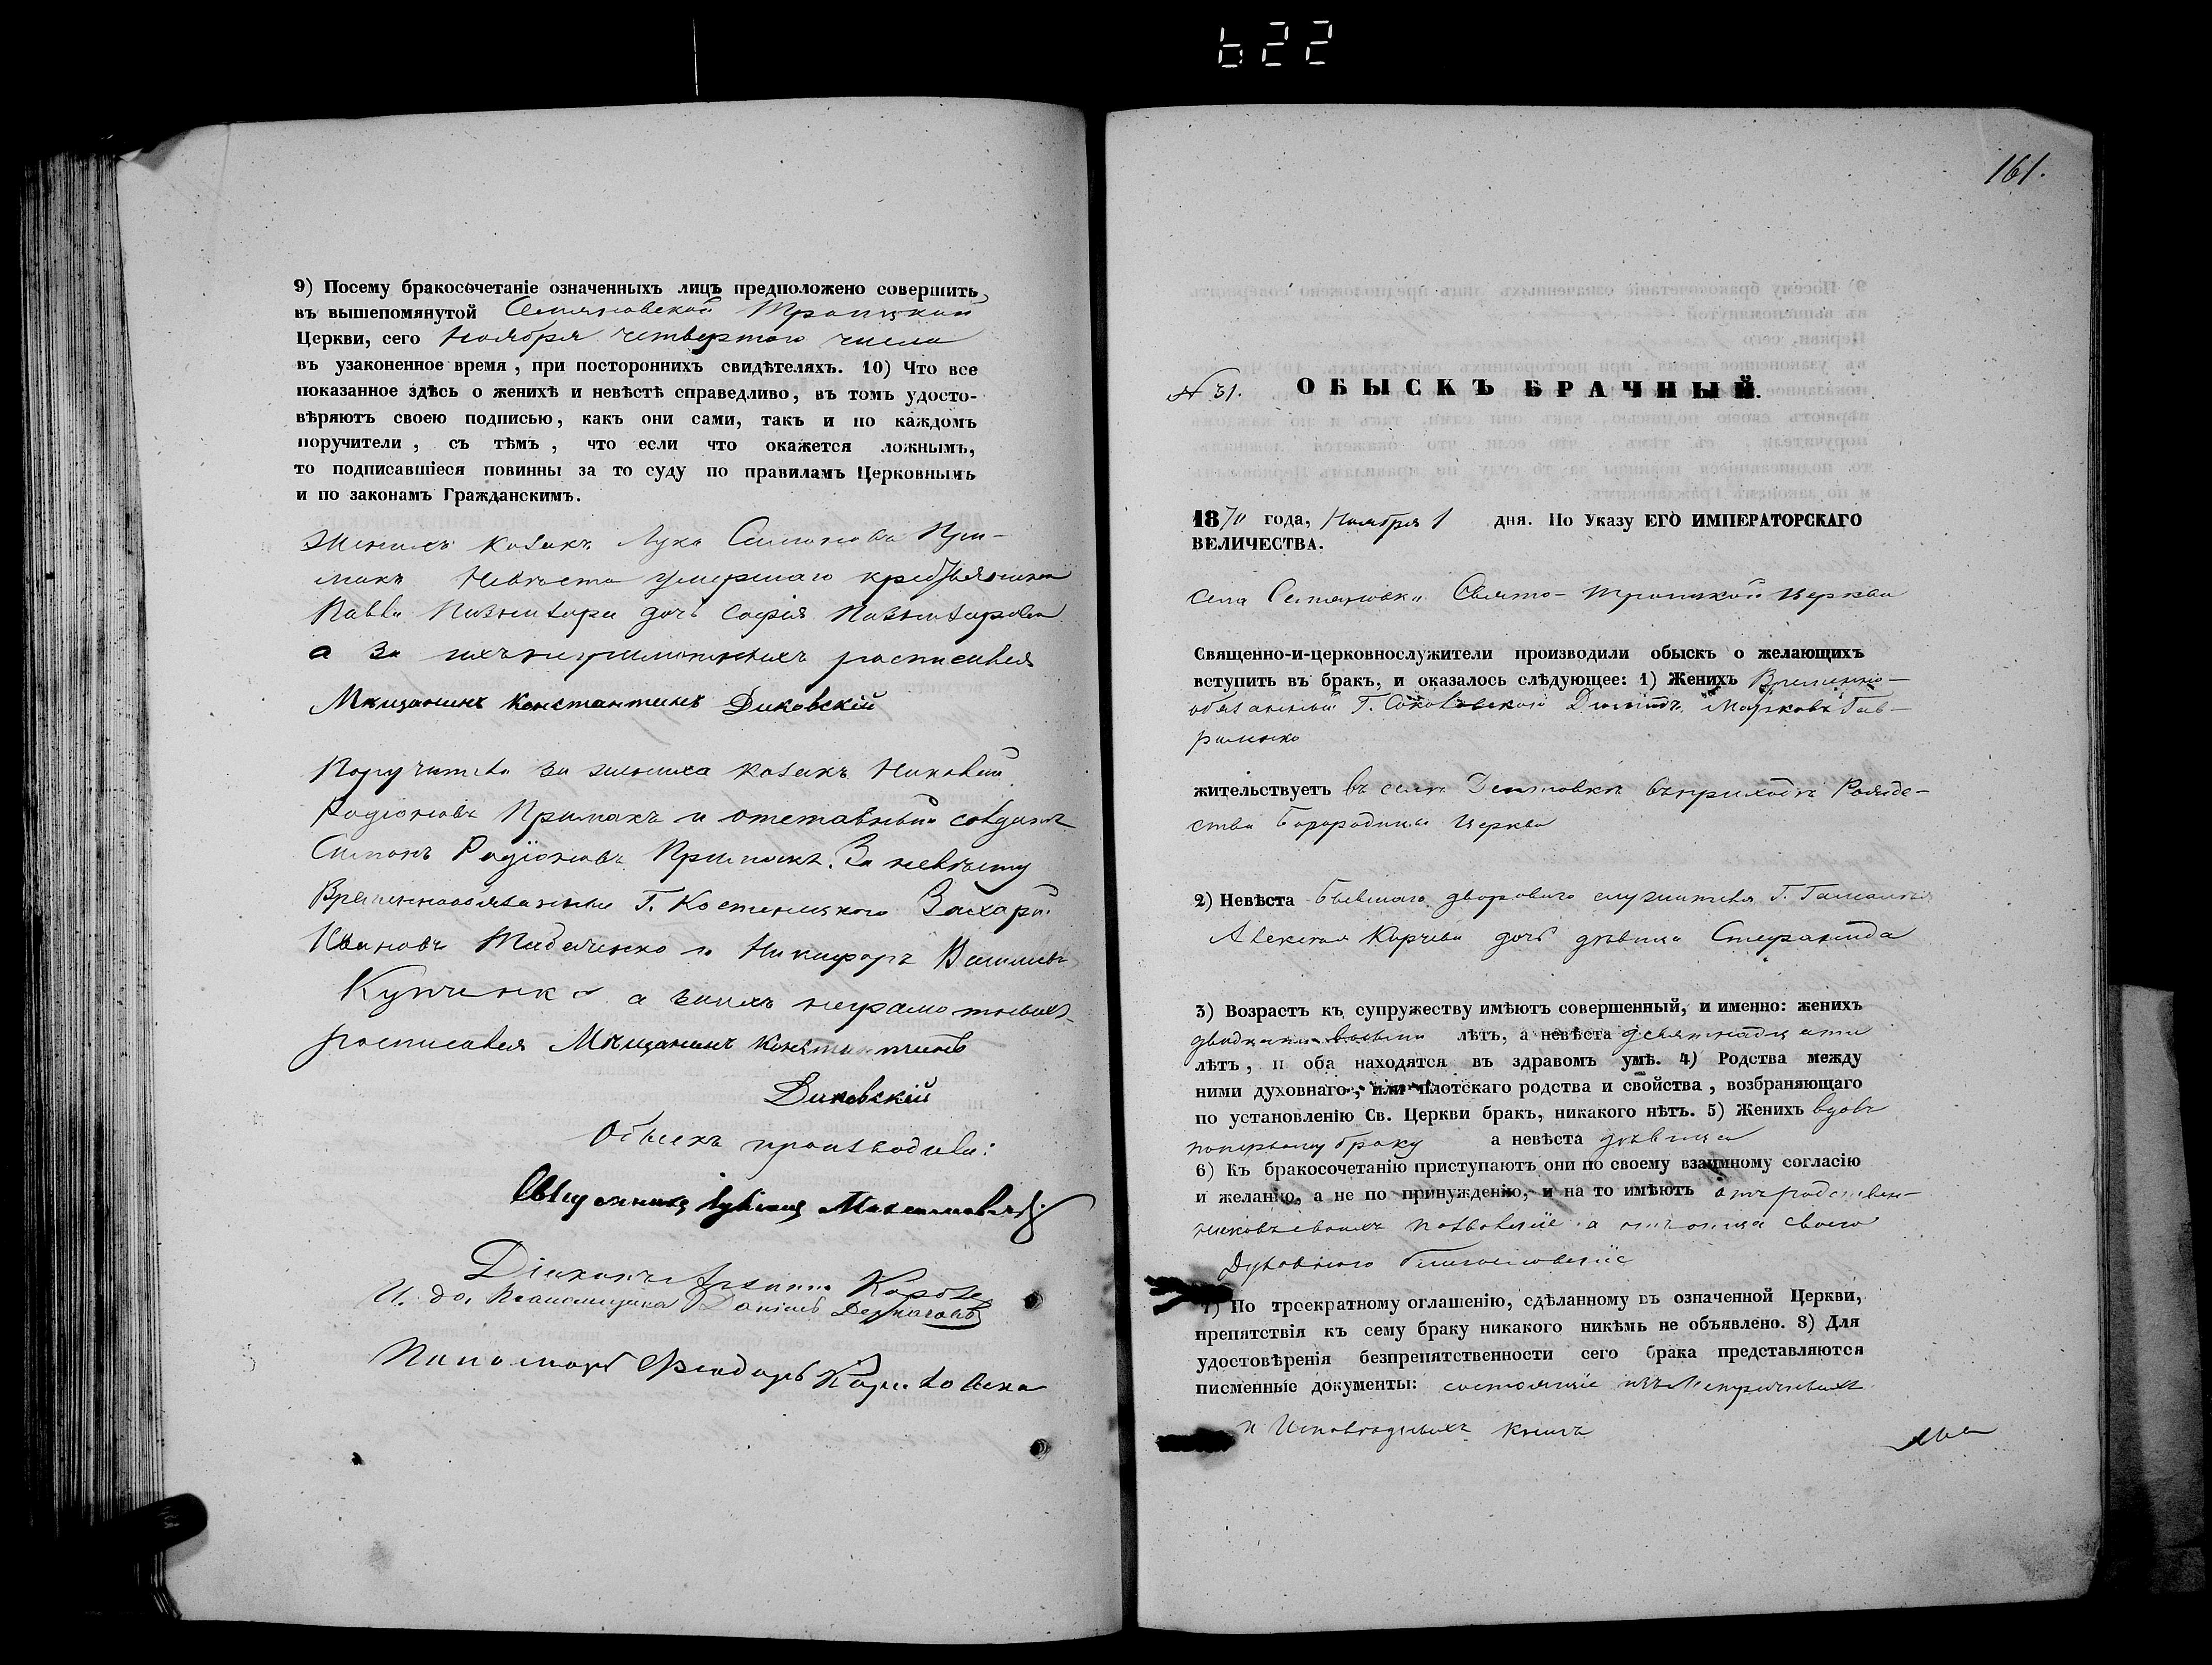 622
9) Посему бракосочетаніе означенныхъ лицъ предположено совершить
въ вышепомянутой Семяновской Троицкой
Церкви, сего Ноября четвертаго числа
въ узаконенное время, при постороннихъ свидѣтеляхъ. 10) Что все
показанное здѣсь о женихѣ и невѣстѣ справедливо, въ томъ удосто-
вѣряютъ своею подписью, какъ они сами, такъ и по каждомъ
поручители, съ тѣмъ, что если что окажется ложнымъ,
то подписавшіеся повинны за то суду по правиламъ Церковнымъ
и по законамъ Гражданскимъ.
Женихъ козакъ Лука Симоновъ При-
макъ Невѣста умершаго крестьянина
Павла дочь Софія
а за ихъ неграмотныхъ росписался
Мѣщанинъ Константинъ Диковскій
Поручители за жениха козакъ Николай
Родіоновъ Примакъ и отставный солдатъ
Симонъ Родіоновъ Примакъ. За невѣсту
Временнообязанные Г. Костенецкого Захарій
Ивановъ и Никифоръ Васильевъ
Купченко а за ихъ неграмотныхъ
росписался Мѣщанинъ Константинъ
Диковскій
Обыскъ производили:
Священникъ
Діаконъ
И. до. Псаломщика Даніилъ
Пономарь Феодоръ
161.
№ 31. ОБЫСКЪ БРАЧНЫЙ.
1870 года, Ноября 1 дня. По Указу ЕГО ИМПЕРАТОРСКАГО
ВЕЛИЧЕСТВА.
Села Семяновки Свято-Троицкой Церкви
Священно-и-церковнослужители производили обыскъ о желающихъ
вступить въ бракъ, и оказалось слѣдующее: 1) Женихъ Временно-
обязанный Г. Марковъ Гав-
риленко
жительствуетъ въ селѣ въ приходѣ Рожде-
ства Богородицы Церкви
2) Невѣста бывшаго дворового служителя Г.
Алексѣя дочь дѣвица Степанида
3) Возрастъ къ супружеству имѣютъ совершенный, и именно: женихъ
двадцати восьми лѣтъ, а невѣста девятнадцати
лѣтъ, и оба находятся въ здравомъ умѣ. 4) Родства между
ними духовнаго, или плотскаго родства и свойства, возбраняющаго
по установленію Св. Церкви бракъ, никакого нѣтъ. 5) Женихъ вдовъ
по первому браку а невѣста дѣвица
6) Къ бракосочетанію приступаютъ они по своему взаимному согласію
и желанію, а не по принужденію, и на то имѣютъ отъ родствен-
никовъ своихъ позволеніе а отъ отца своего
Духовного благословеніе
7) По троекратному оглашенію, сдѣланному въ означенной Церкви,
препятствія къ сему браку никакого никѣмъ не объявлено. 8) Для
удостовѣренія безпрепятственности сего брака представляются
писменные документы: состояніе изъ Метричныхъ
и Исповѣдныхъ книгъ